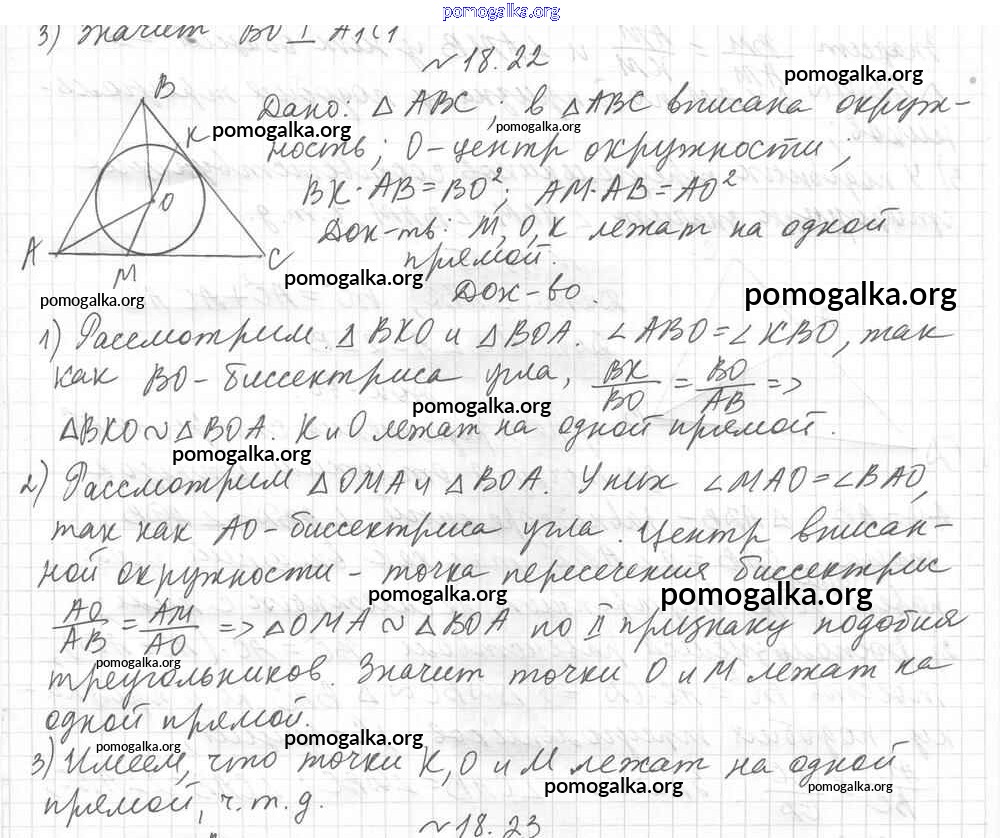 pomogalka.org
3) Значит BO ⊥ A₁C₁
№18.22
pomogalka.org
B
K
Дано: △ ABC; в △ABC вписана окруж-
pomogalka.org
pomogalka.org
ность; O-центр окружности;
BK · AB = BO²; AM · AB = AO²
O
Док-ть: M, O, K лежат на одной
прямой.
A
M
C
pomogalka.org
pomogalka.org
Док-во.
pomogalka.org
1) Рассмотрим △ BKO и △ BOA. ∠ ABO = ∠ KBO, так
как BO - биссектриса угла, BK/BO = BO/AB =>
pomogalka.org
△BKO ~ △ BOA. K и O лежат на одной прямой.
pomogalka.org
2) Рассмотрим △ OMA и △ BOA. У них ∠MAO = ∠BAO,
так как AO - биссектриса угла. Центр вписан-
ной окружности - точка пересечения биссектрис
pomogalka.org
pomogalka.org
AO/AB = AM/AO => △OMA ~ △BOA по II признаку подобия
pomogalka.org
треугольников. Значит точки O и M лежат на
одной прямой.
pomogalka.org
pomogalka.org
3) Имеем, что точки K, O и M лежат на одной
pomogalka.org
pomogalka.org
прямой, ч.т.д.
№18.23